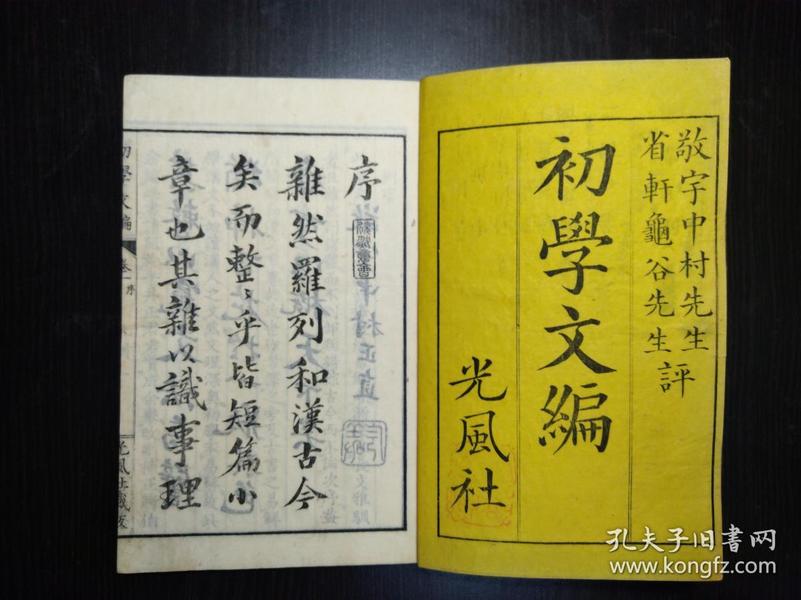 敬宇中村先生
省軒龜谷先生評
初學文編
光風社
序
雜然羅列和漢古今
矣而整〻乎皆短篇小
章也其雜以識事理
初學文編
卷一
序
光風社藏版
孔夫子旧书网
www.kongfz.com